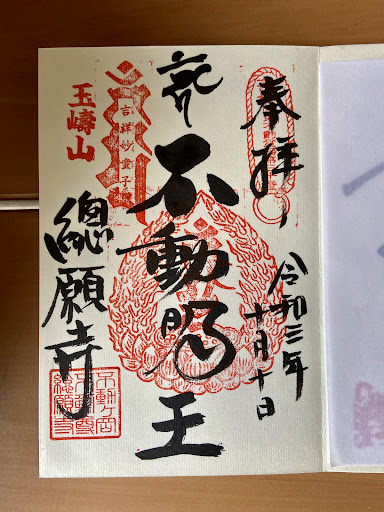 奉拝
令和三年
十月十日
不動明王
吉祥妙童子
玉嶹山
總願寺
不動ヶ岡
不動尊
總願寺